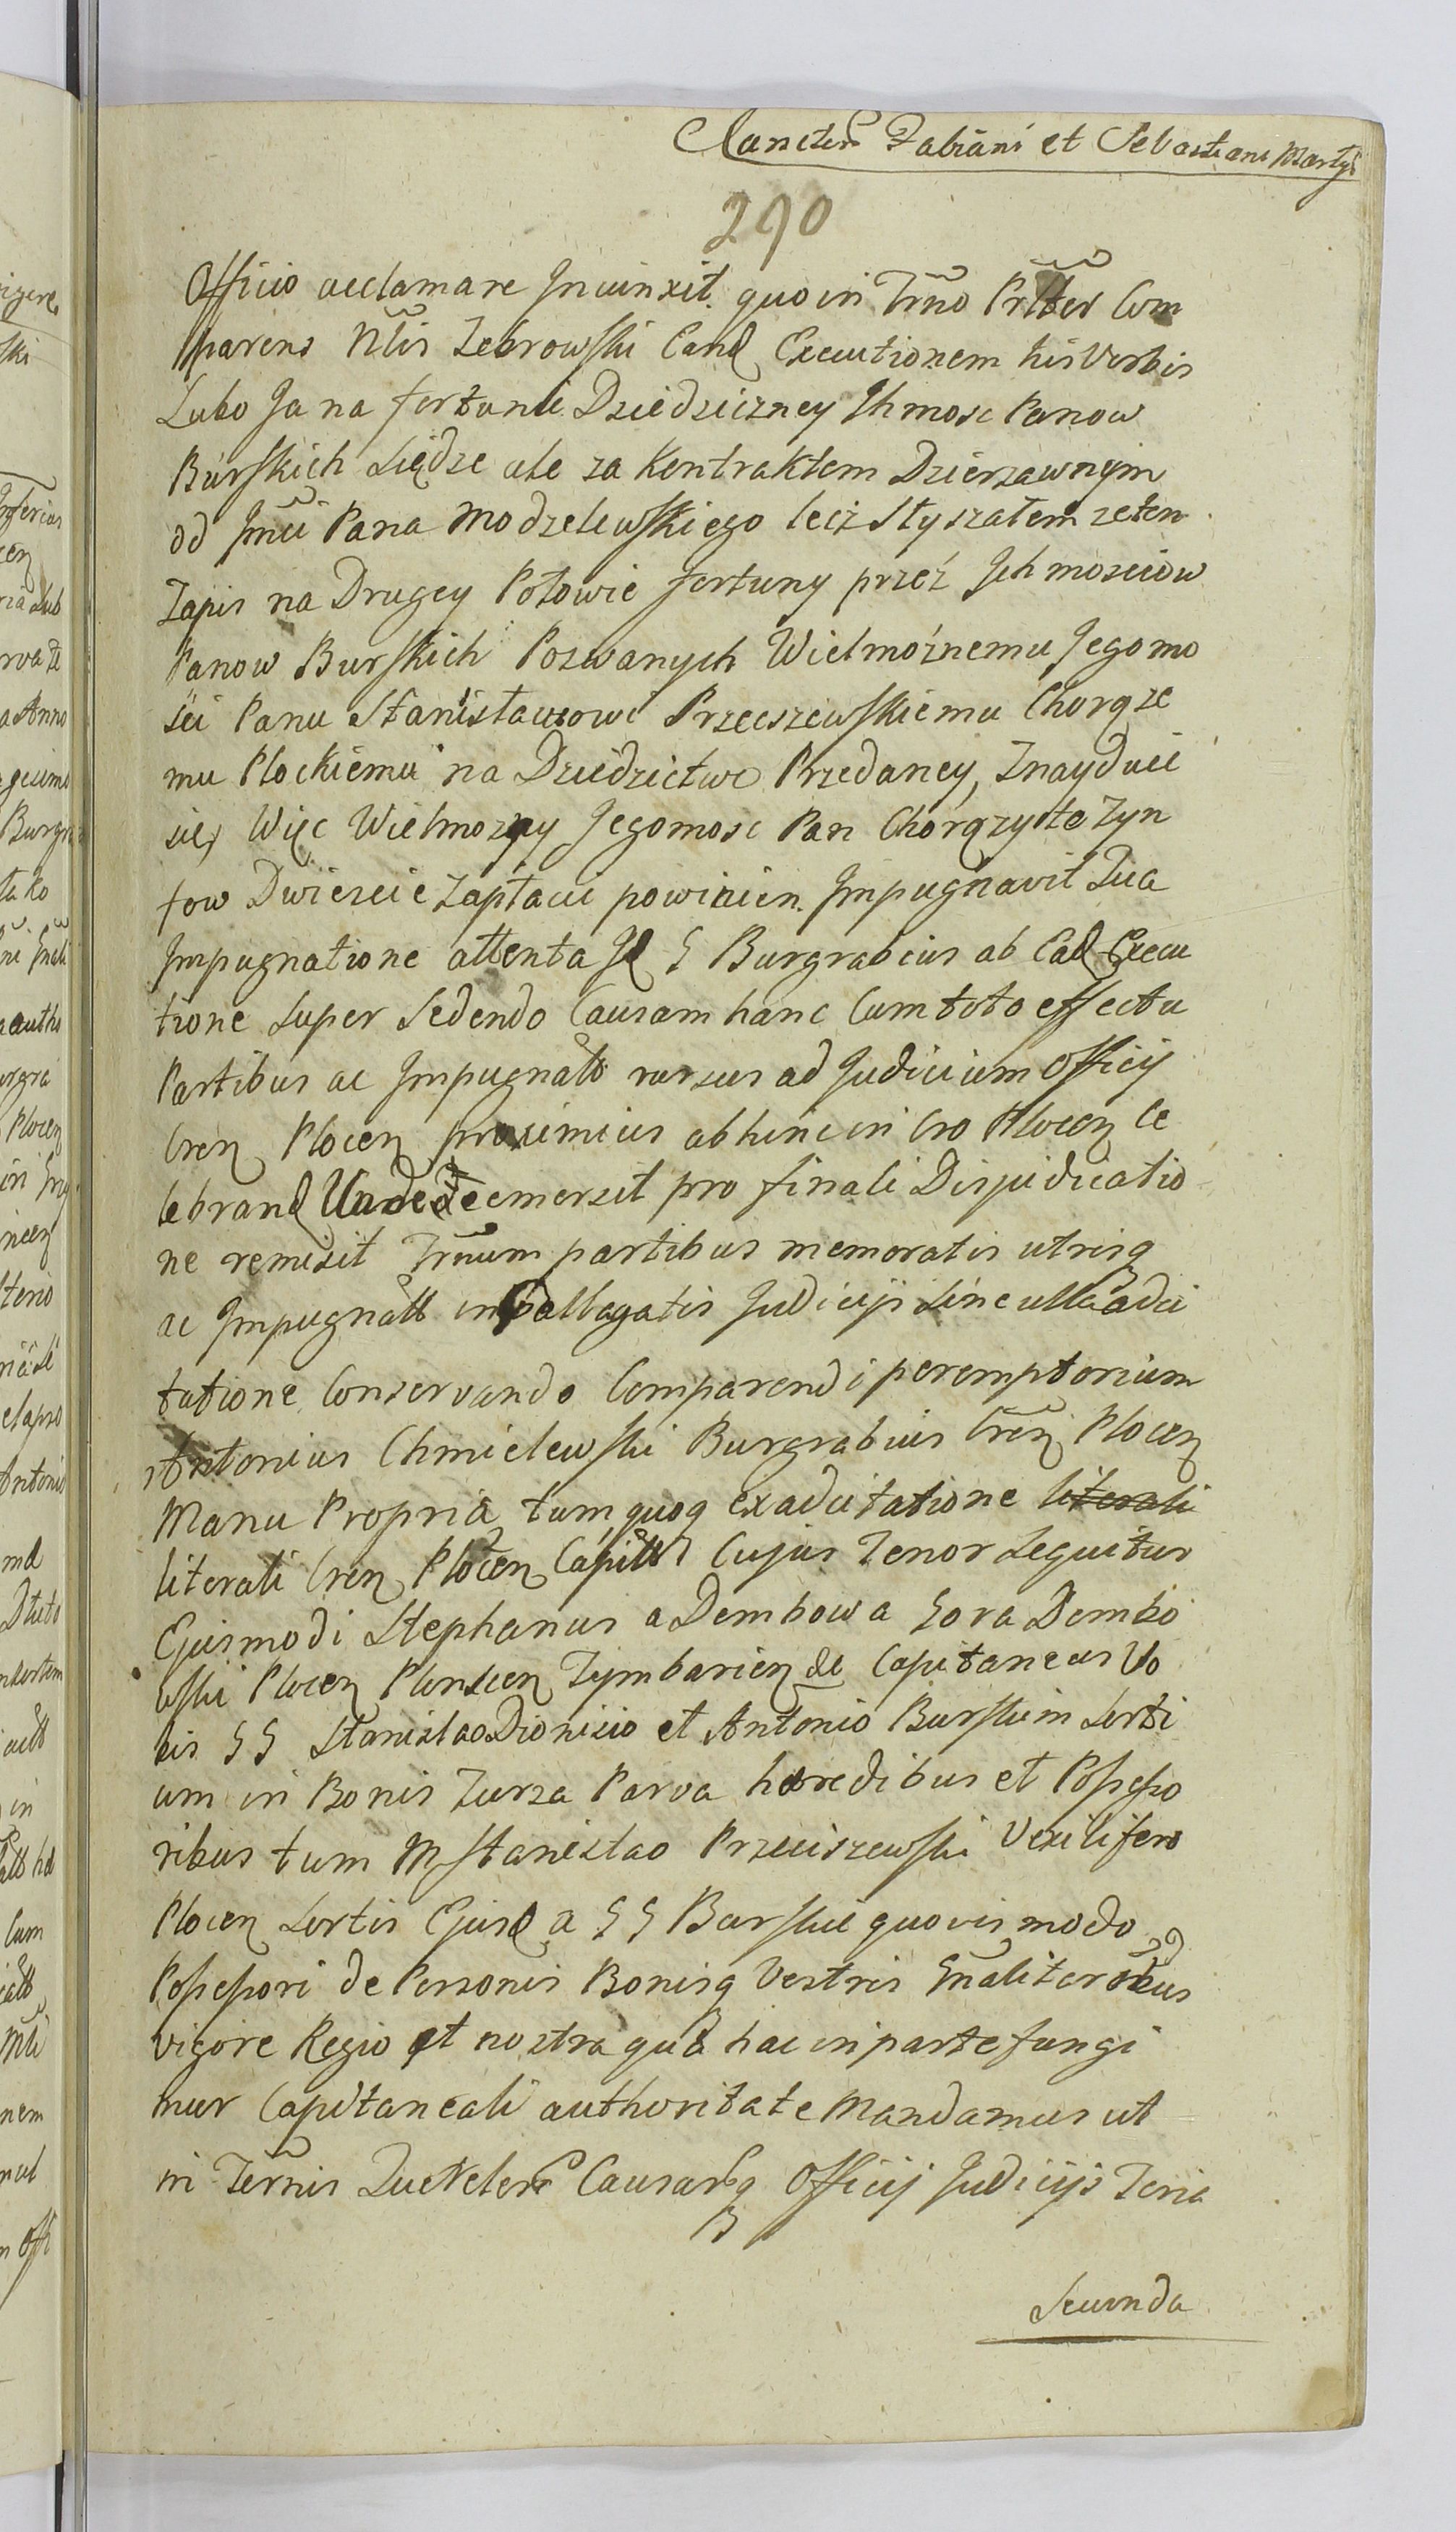 Sanctoru Fabiani et Sebastiani Marty
290
Officio acclamare Iniunxit. quo in Trno Com
parens Nlis Zebrowski Eand Executionem his Verbis
Lubo Ja na fortunie Dziedziczney Ihmosc Panow
Burskich siędze ale za Kontraktem Dzierzawnym
od Jmci Pana Modzelewskiego lecz słyszałem ze ten
Zapis na Drugey Połowie fortuny przez Ichmosciow
Panow Burskich Pozwanych Wielmożnemu Jegomo
sci Panu Stanisławowi Przeciszewskiemu Chorąze
mu Plockiemu na Dziedzictwo Przedaney, Znayduie
się, Więc Wielmozny Jegomosc Pan Chorązy te Tyn
fow Dwiescie zapłacic powinien. Impugnavit Qua
Impugnatione attenta Id G Burgrabius ab Ead Execu
tione super sedendo Causam hanc Cum toto effectu
Partibus ac Impugnatt rursus ad Judicium Officij
Cren Plocen proximius abhinc in Cro Plocen Ce
lebrand Unde emersit pro finali Disjudicatio
ne remisit Trnum partibus memoratis utrisq
ac Impugnatt in allegatis Judicijs sine ulla adci
tatione Conservando Comparendi peremptorium
Antonius Chmielewski Burgrabius Cren Plocen
Manu Propria, tum quoq ex adcitatione literali
literali Cren Plocen Capittl Cujus Tenor sequitur
Ejusmodi Stephanus a Dembowa Gora Dembo
wski Plocen Plonscen Tymbarien de Capitaneus Vo
bis GG Stanislao Dionisio et Antonio Burskim Sorti
um in Bonis Turza Parva heredibus et Possesso
ribus tum M Stanislao Przeciszewski Vexillifero
Plocen Sortis Ejusd a GG Burskie quovis modo
Possessori de Personis Bonisq Vestris Gnaliter oibus
vigore Regio et nostra qua hac in parte fungi
mur Capitaneali authoritate Mandamus ut
in Ternis Querelaru Causarq Officij Judicijs Feria
Secunda